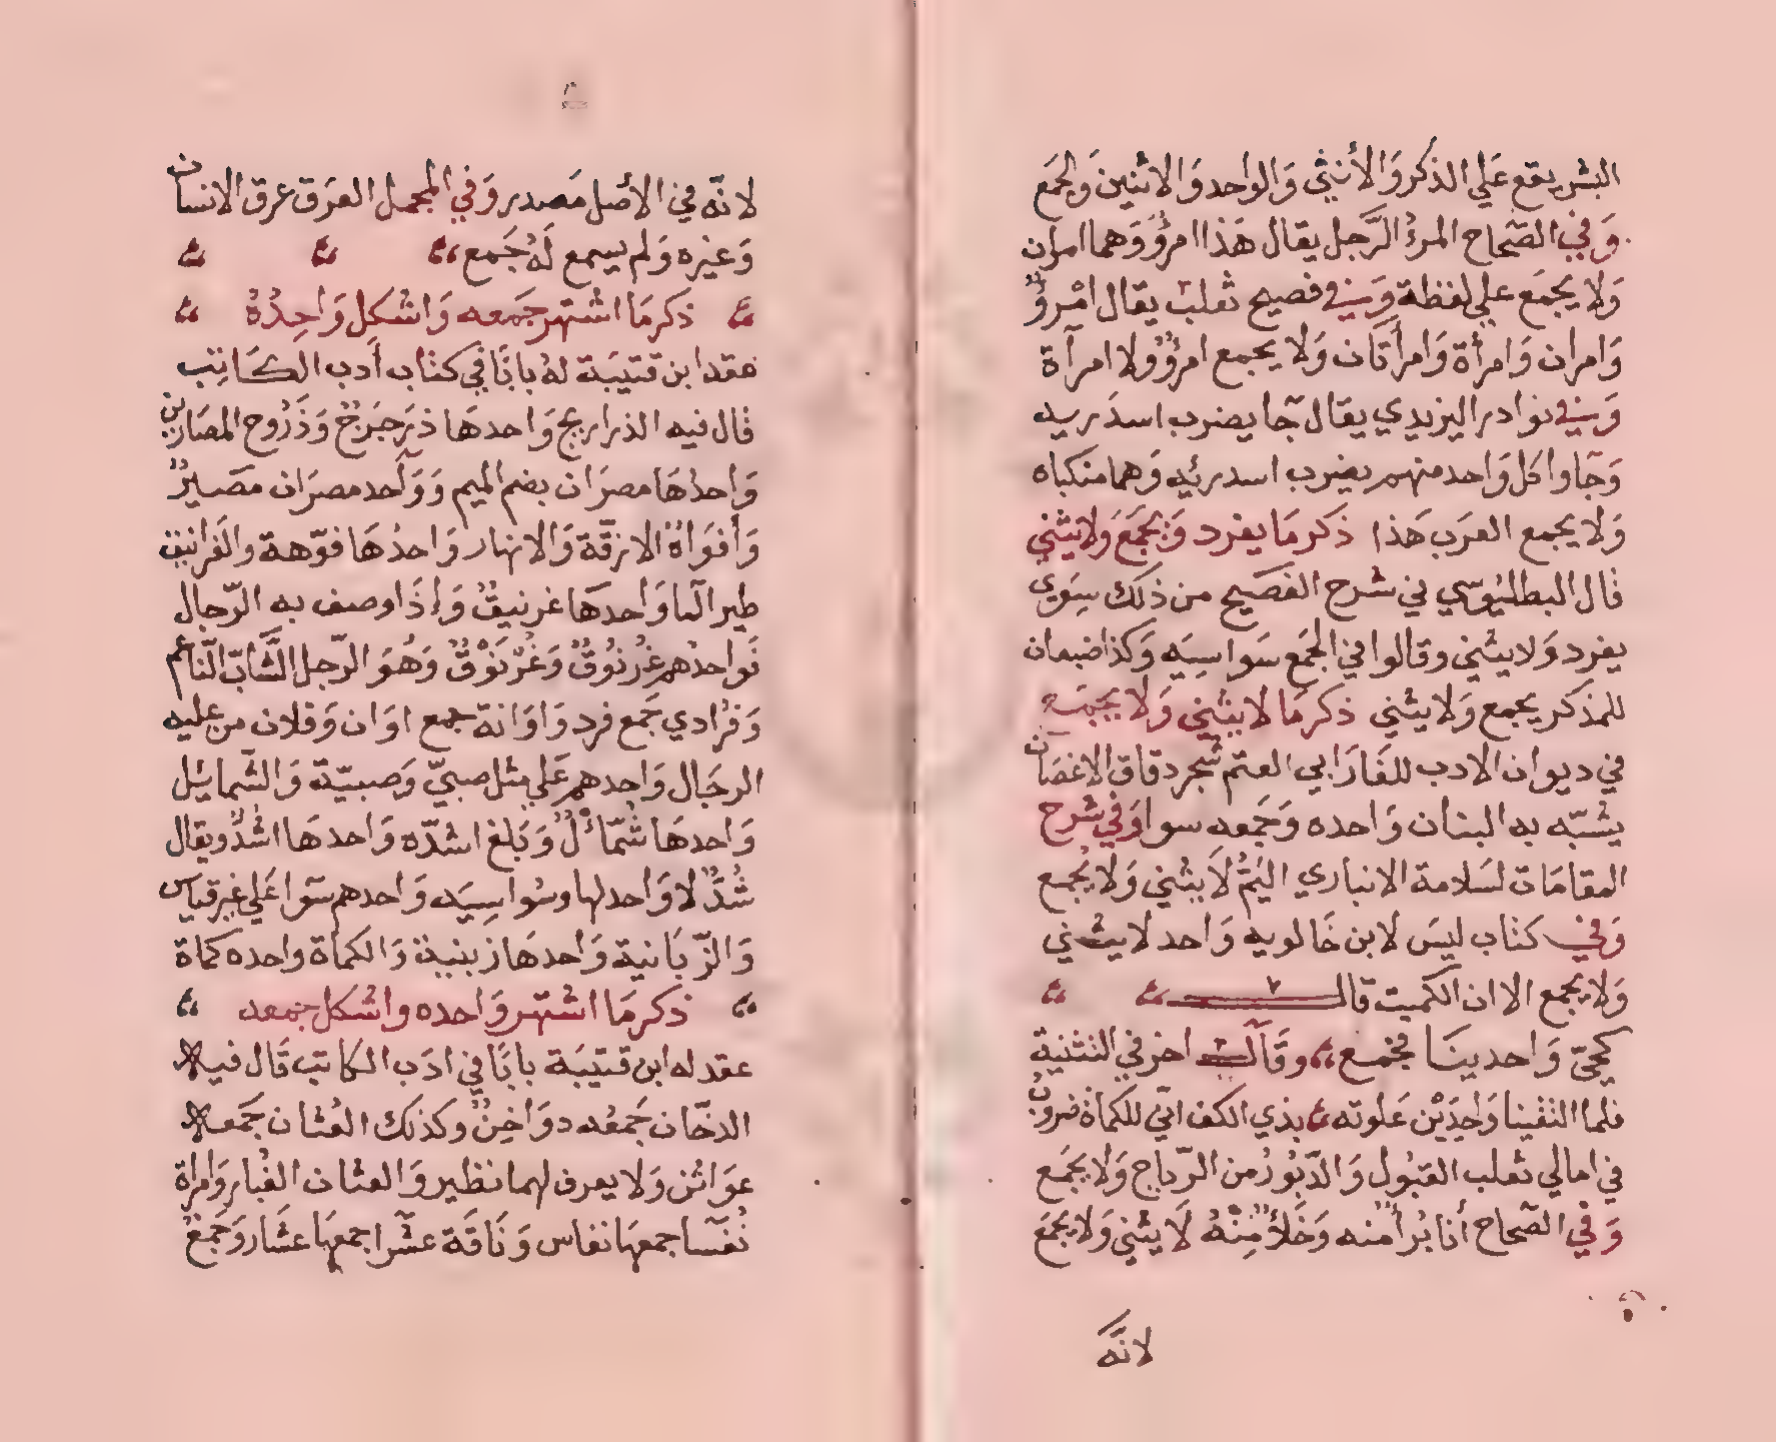 البشر يقع علي الذكر وَالأنثي وَالواحد وَالاثنين وَالجمَع
وَفي الصّحاح المرءُ الرّجل يقال هَذا امرؤ وَهما امران
وَلا يجمَع علي لفظة وَفي فصيح ثعلب يقال امْرؤٌ
وَامران وَامرأة وَامرأتان وَلا يجمع امرؤٌ ولا امرآة
وَفي نوادر اليزيدي يقال جَا يضرب اسدَريه
وَجَاوا كل وَاحد منهم يضرب اسدرئيه وَهما منكباه
وَلا يجمع العرَب هَذا ذكر مَا يفرد وَيجمَع وَلا يثني
قال البطليُوسي في شرح الفصَيح من ذلك سِوَي
يفرد وَلا يثني وقالوا في الجمَع سَواسِيَه وَكذا ضبعان
للمذكر يجمع وَلا يثني ذكر مَا لا يثني وَلا يجمَع
في ديوان الادب للفَارَابي العتم شجر دقاق الاغصَان
يشبّه به البنان وَاحده وَجَمعه سوا وَفي شرح
المقامَات لسَلامة الانباري اليَمُّ لَا يثني وَلا يُجمع
وَفي كتاب ليسَ لابن خَالويه وَاحد لا يثني
وَلا يجمع الا ان الكميت قال
كحيّ وَاحدينَا فجمع وقَال اخر في التثنية
فلما التقينا وَاحِدَيْن عَلوته بذي الكف اني للكماة ضروبُ
في امالي ثعلب القبُول وَالدّبُورُ من الرّياح وَلا يجَمع
وَفي الصّحاح أنا بُراٌ منه وَخَلأٌ مِنْهُ لَا يثني وَلا يجمَع
لانَّه
لانّه في الأصْل مَصدر وَفي المجمل العرَق عرق الانسان
وَغيره وَلم يسمع لَهُ جَمع
ذكر مَا اشتهر جَمعه وَاشكل وَاحِدُهُ
عقد ابن قتيبَة لهُ بابًا في كتاب أدب الكَاتِب
قال فيه الذراريح وَاحدهَا وَذَرُوح المصَارين
وَاحدُهَا مصرَان بضم الميم وَوَاحد مصرَان مَصَيرٌ
وَأفوَاهُ الازقّة وَالانهار وَاحدُهَا فوّهة والغَرانيق
طير الما وَاحدهَا غرنيقٌ وَإذَا وصف به الرّجال
فَواحدُهم غرْنُوقٌ وَغُرْنَوْقٌ وَهُوَ الرّجل الشَّابّ النّاعم
وَفرَادي جَمع فرد وَاوَانة جمع اوَان وَفلان من عليه
الرجَال وَاحدهم عَلي مثل صبيّ وَصبيّة وَالشّمائيل
وَاحدهَا شْمَائلٌ وَبَلغ اشدّه وَاحدهَا اشُدٌّ ويقال
شُدٌّ لا وَاحد لها وسُواسِيَه وَاحدهم سَوا عَلي غير قياس
وَالزّبَانية وَاحدهَا زبنية وَالكمأة واحده كماة
ذكر مَا اشتهر وَاحده واشكل جمعه
عقد له ابن قتيبَة بابًا في ادَب الكاتب قَال فيه
الدخّان جَمعُه دوَاخِنٌ وكذلك العُثان جَمَعه
عوَاثن وَلا يعرف لهما نظير وَالعثان الغُبار وَامراة
نُفَسَا جمعهَا نفاس وَنَاقَة عشَرا جمعهَا عشَار وَجَمْعُ